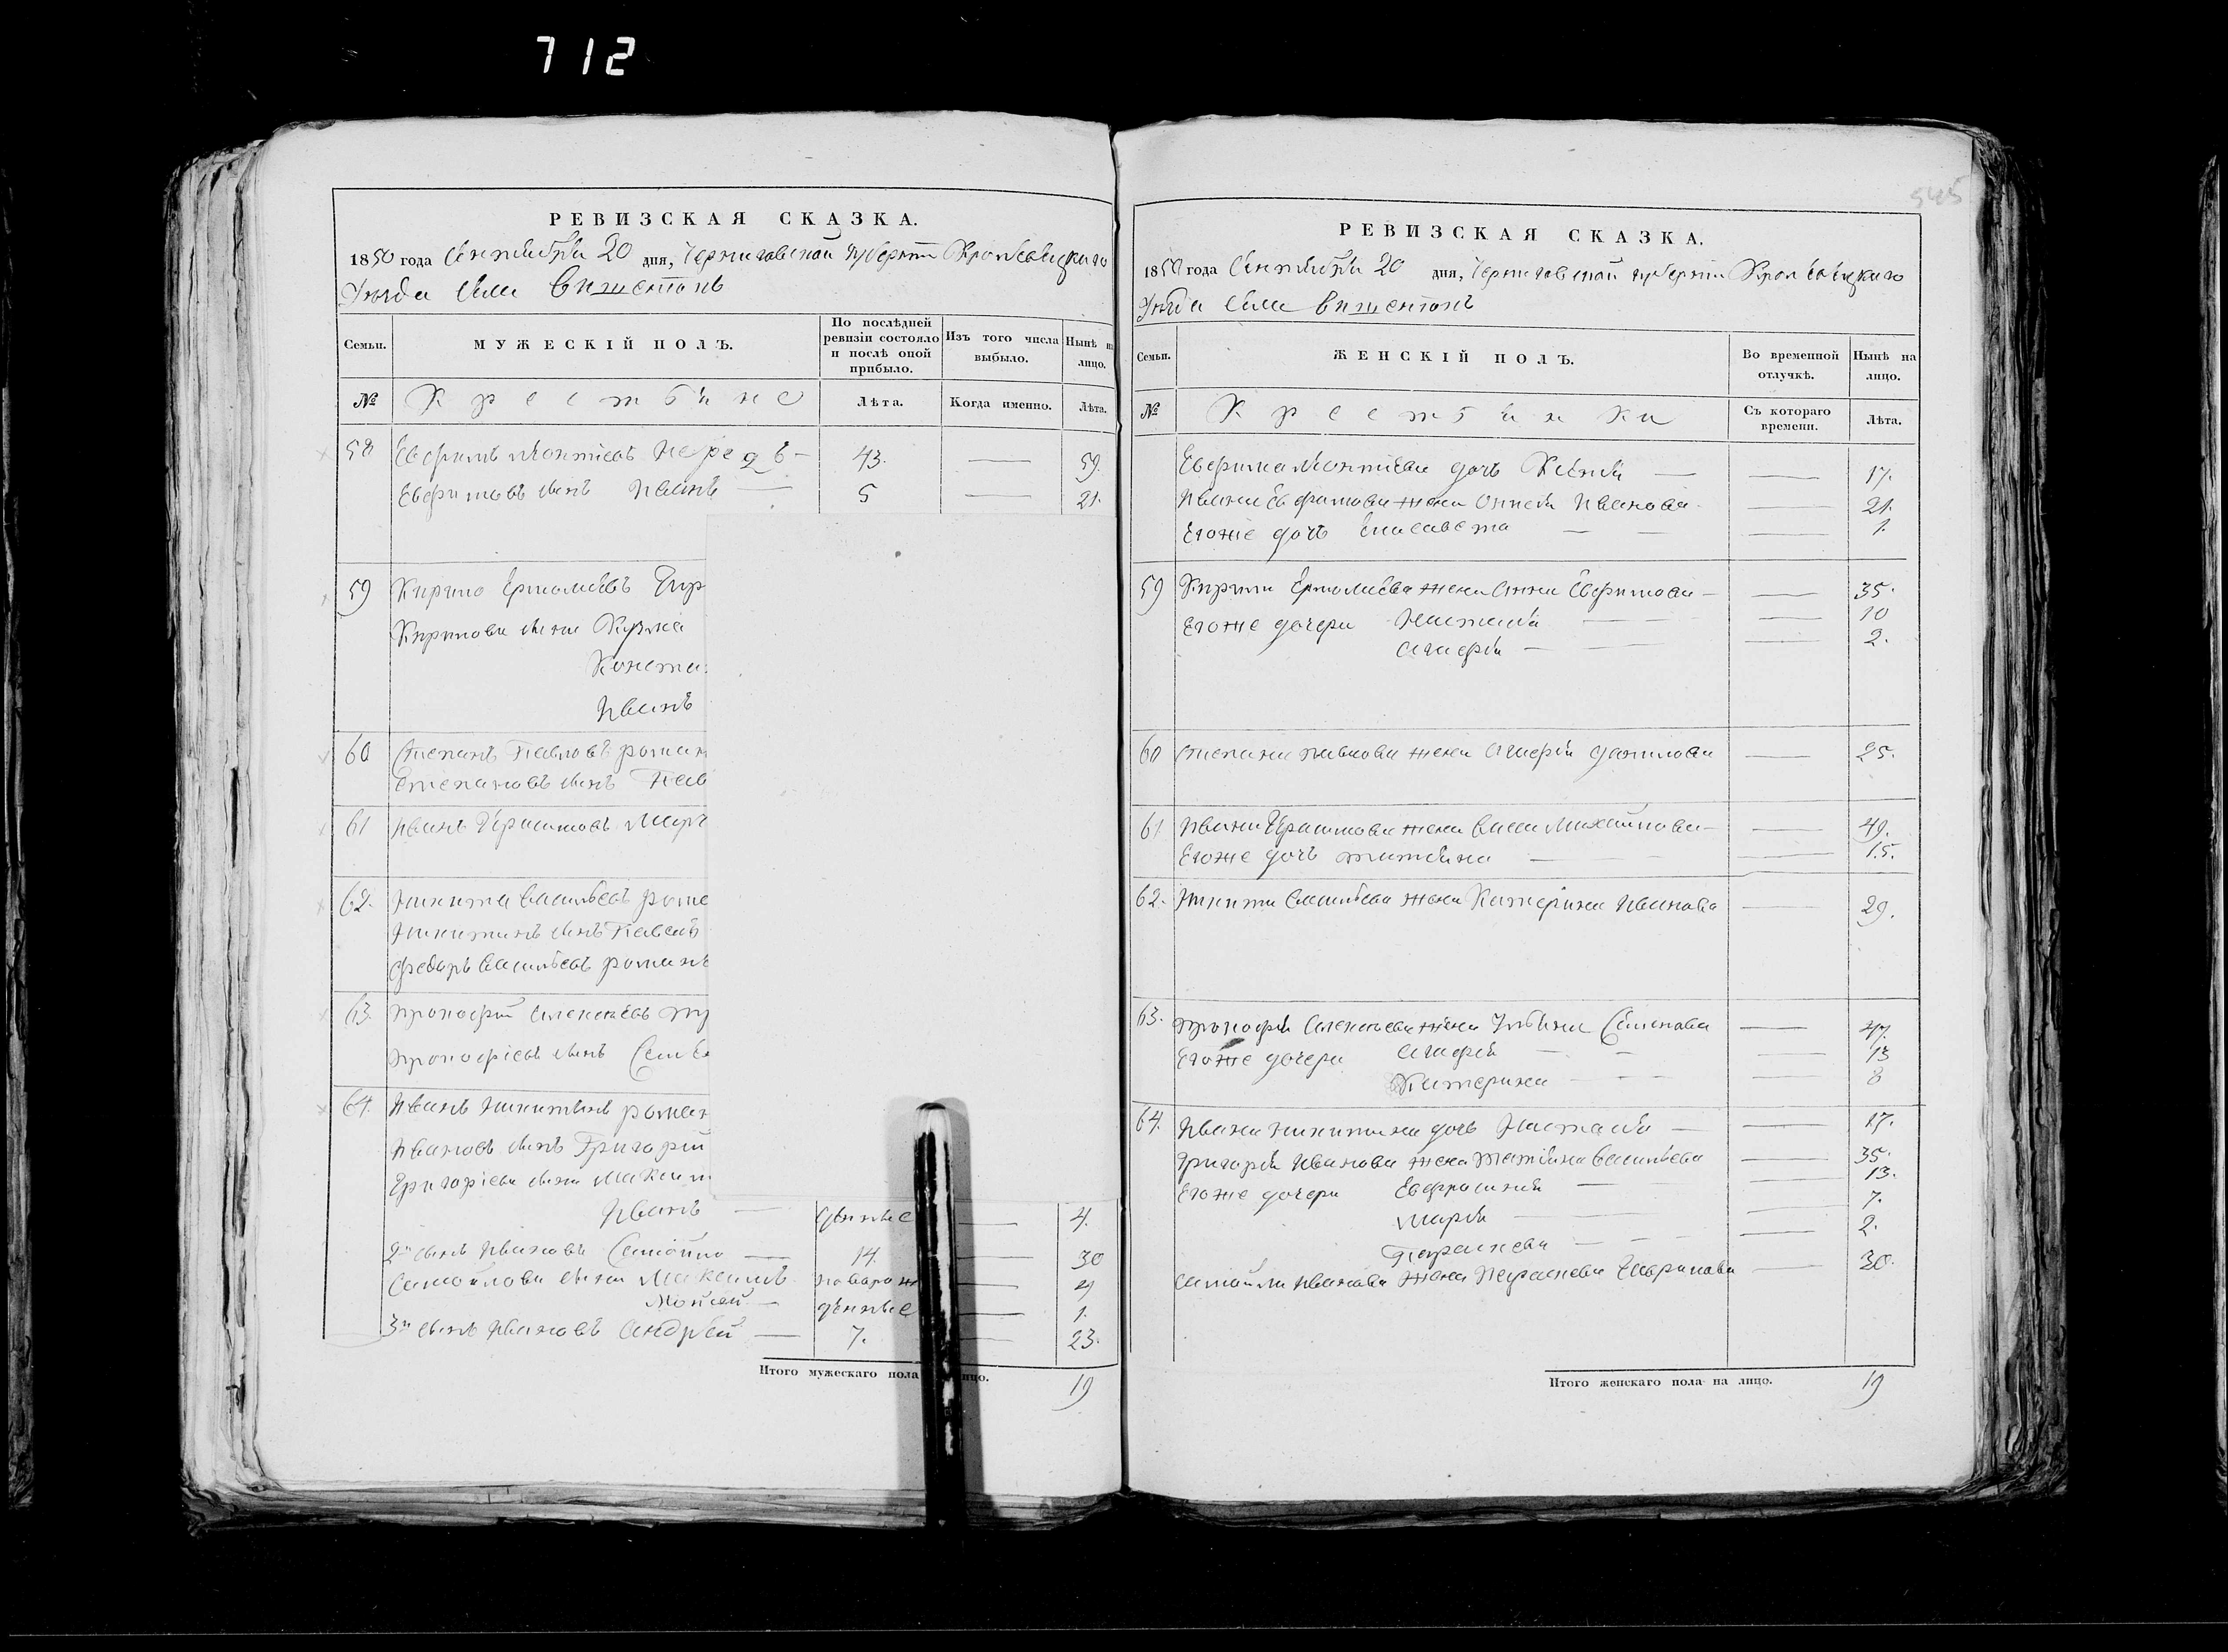 712
545
РЕВИЗСКАЯ СКАЗКА.
1850 года Сентября 20 дня, Черниговской губернии Кролевецкаго
Уезда Села Вишенокъ
Семьи.
МУЖЕСКІЙ ПОЛЪ.
По послѣдней ревизіи состояло и послѣ оной прибыло.
Изъ того числа выбыло.
Нынѣ на лицо.
№
Крестьяне
Лѣта.
Когда именно.
Лѣта.
58 Евфимъ 43. — 59.
Евфимовъ сынъ Иванъ — 5 — 21.
59 Кирило Ермолаевъ
Кирилови сыни Кузма
Конста
Иванъ
60 Степанъ Павловъ роман
Степановъ сынъ Пав
61 Иванъ Герасимовъ
62. Никита Васильевъ рома
Никитинъ сынъ Павелъ
Федоръ Васильевъ романъ
63. Прокофій Алексѣевъ
Прокофіевъ сынъ Саве
64. Иванъ Никитинъ роман
Ивановъ сынъ Григорій
Григоріеви сыни Максим
Иванъ — — 4.
2й сынъ Ивановъ Самойло — 14. — 30
Самойлови сыни Максимъ новорож — 4
Мойсей — — 1.
3й сынъ Ивановъ Андрей — 7. — 23.
Итого мужескаго пола лицо. 19
РЕВИЗСКАЯ СКАЗКА.
1850 года Сентября 20 дня, Черниговской губерніи Кролевецкаго
Уезда Села Вишенокъ
Семьи.
ЖЕНСКІЙ ПОЛЪ.
Во временной отлучкѣ.
Нынѣ на лицо.
№
Крестьянки
Съ котораго времени.
Лѣта.
Евфима дочь Ксенія — — 17.
Ивана Евфимова жена Иванова — 21.
Егоже дочь Елисавета — — — 1.
59 Кирила Ермолаева жена Анна Евфимова — — 35.
Егоже дочери Наталія — — — 10
Агафія — — — 2.
60 Степана Павлова жена Агафія Данилова — 25.
61. Ивана Герасимова жена Михайлова — — 49.
Егоже дочь Татіана — — — 15.
62. Никиты Васильева жена Катерина Иванова — 29.
63. Прокофія Алексѣева жена Уліяна Семенова — 47.
Егоже дочери Агафія — — — 13
Катерина — — — 8
64. Ивана Никитина дочь Наталія — — 17.
Григорія Иванова жена Татіана Васильева — 35.
Егоже дочери Евфросинія — — 13.
Марія — — — 7.
Параскева — — — 2.
Самойла Иванова жена Параскева Гаврилова — 30.
Итого женскаго пола на лицо. 19